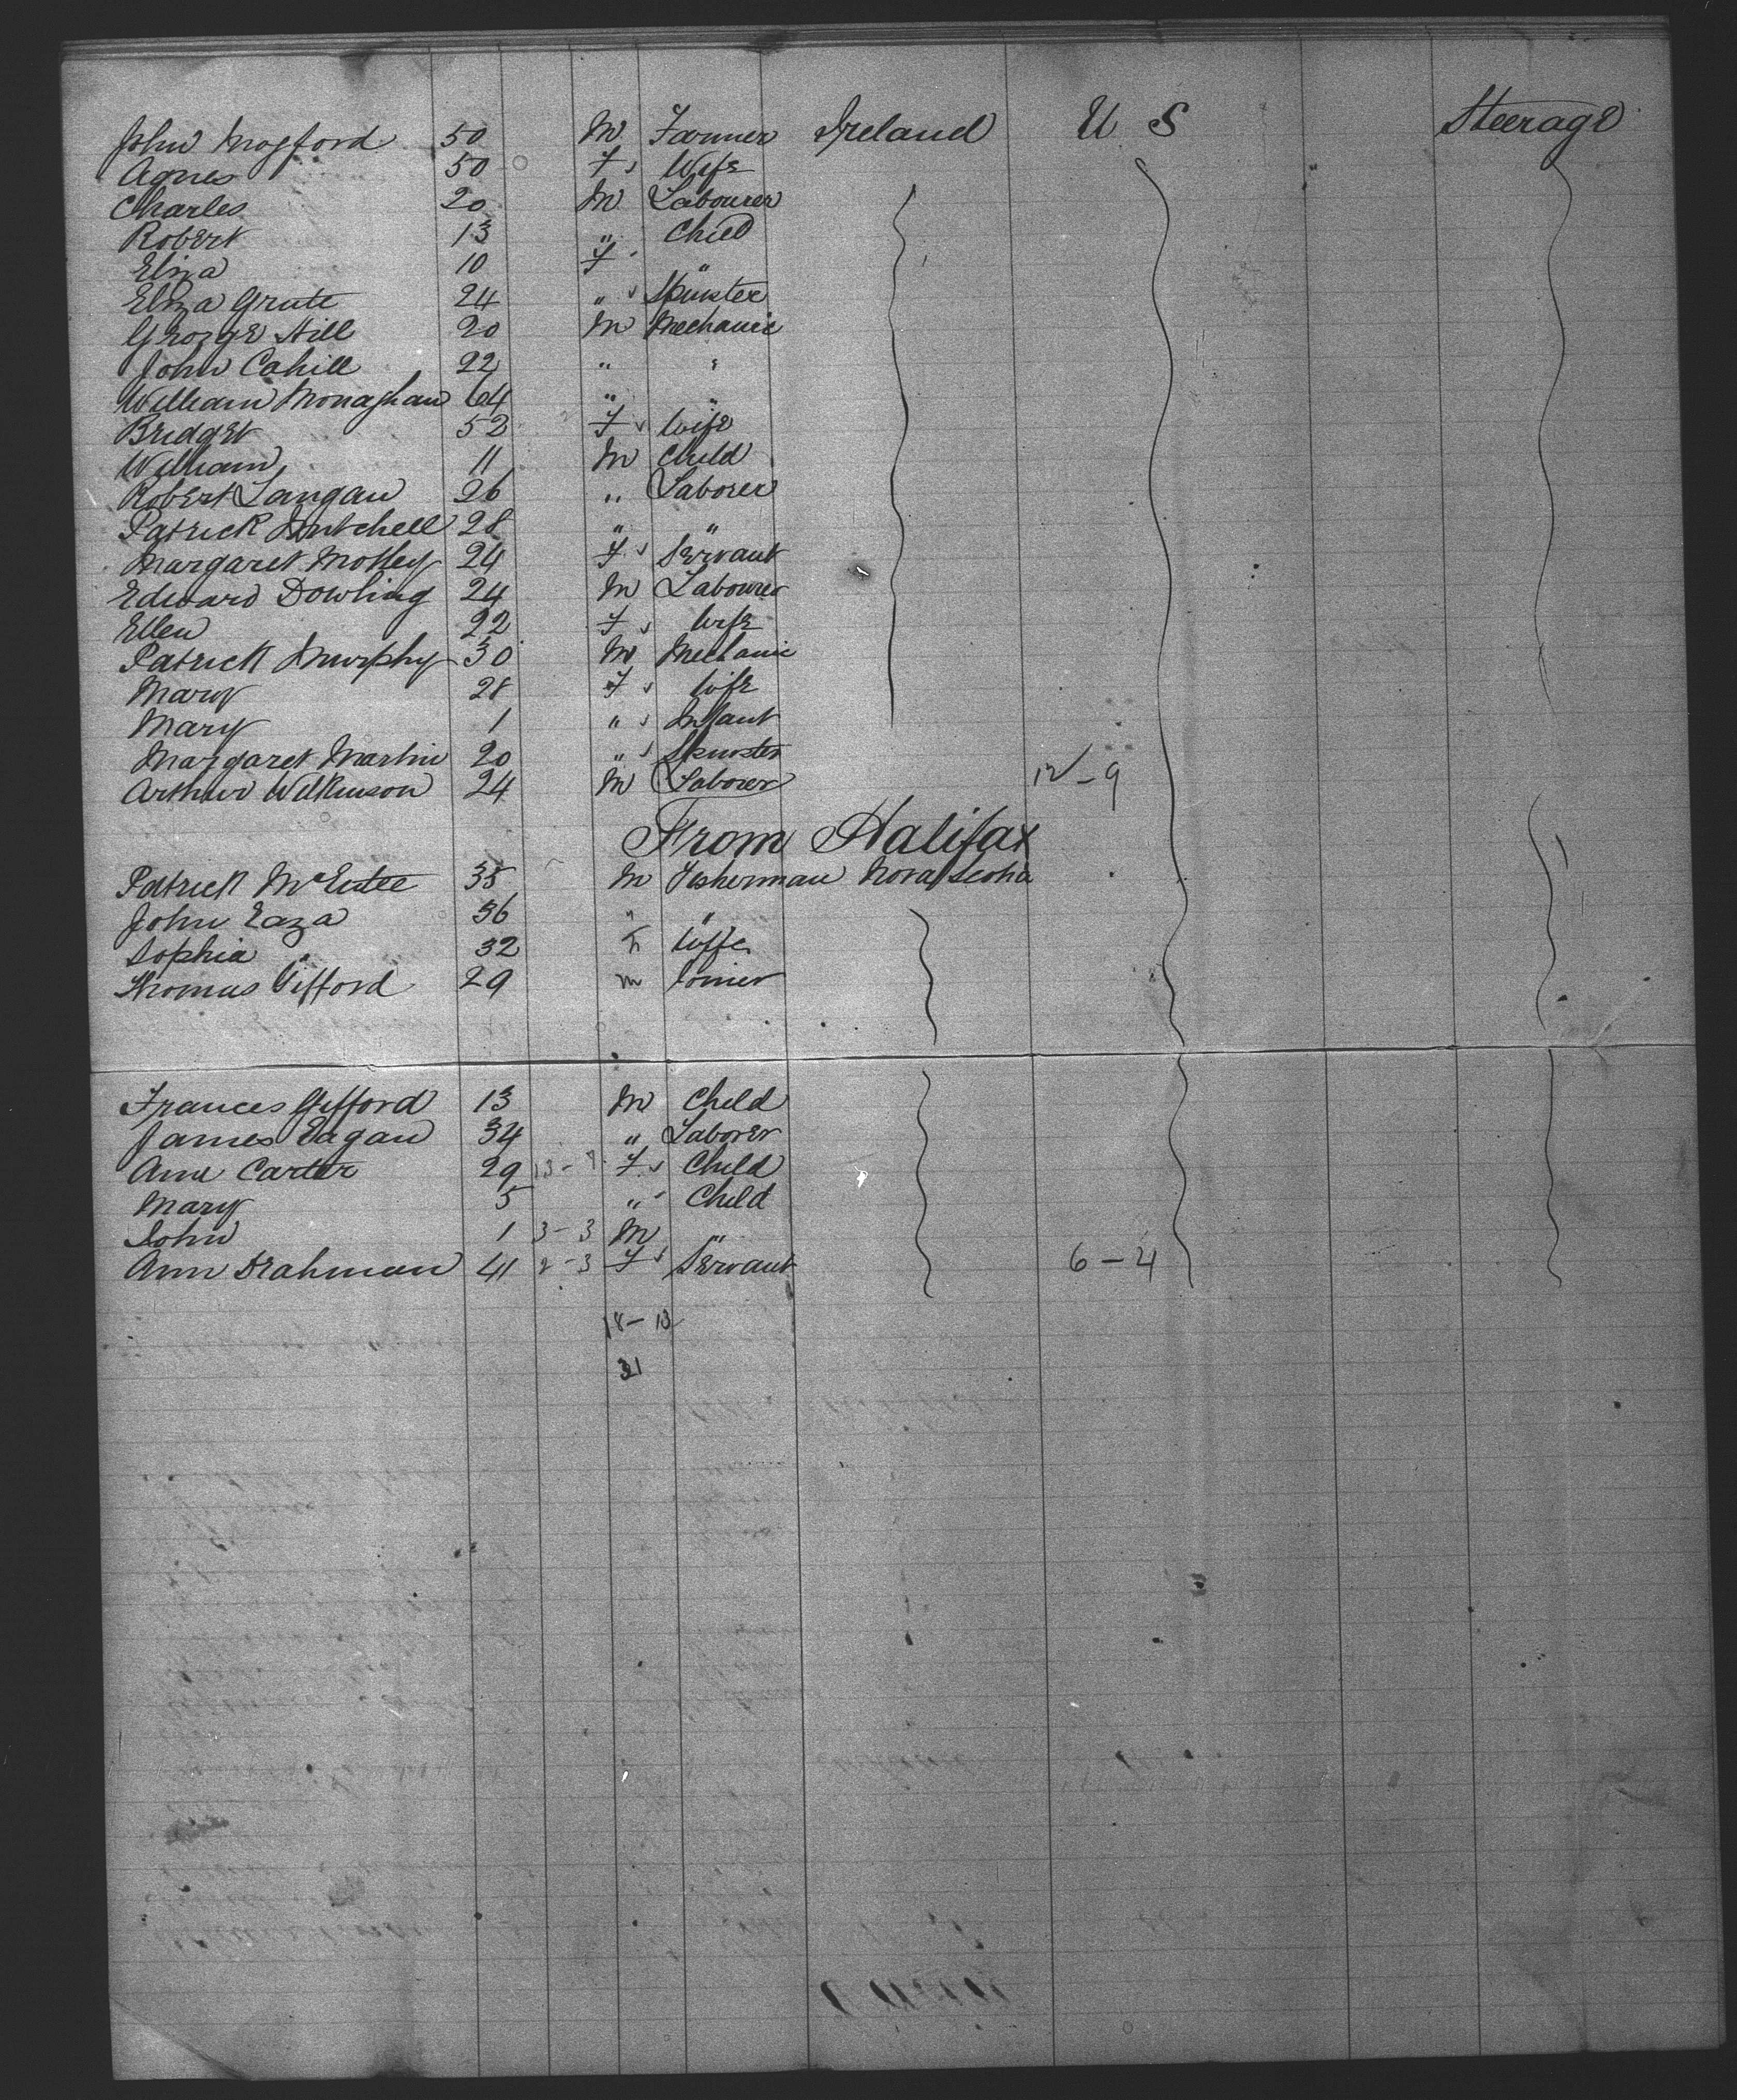 John Mogford 50 M Farmer Ireland U S Steerage
Agnes 50 F Wife
Charles 20 M Labourer
Robert 13 " Child
Eliza 10 F "
Eliza Grute 24 " Spinster
George Hill 20 M Mechanic
John Cahill 22 " "
William Monaghan 64 " "
Bridget 52 F Wife
William 11 M Child
Robert Langan 26 " Laborer
Patrick Mitchell 28 " "
Margaret Motley 24 F Servant
Edward Dowling 24 M Labourer
Ellen 22 F Wife
Patrick Murphy 30 M Mechanic
Mary 28 F Wife
Mary 1 " Infant
Margaret Martin 20 " Spinster
Arthur Wilkinson 24 M Laborer 12-9
From Halifax
Patrick McEntee 35 M Fisherman Nova Scotia
John Eaza 36 " "
Sophia " 32 F Wife
Thomas Gifford 29 M
Frances Gifford 13 M Child
James Eagan 34 " Laborer
Ann Carter 29 F Child
Mary 5 " Child
John 1 3-3 M "
Ann 41 2-3 F Servant 6-4
18-13
31